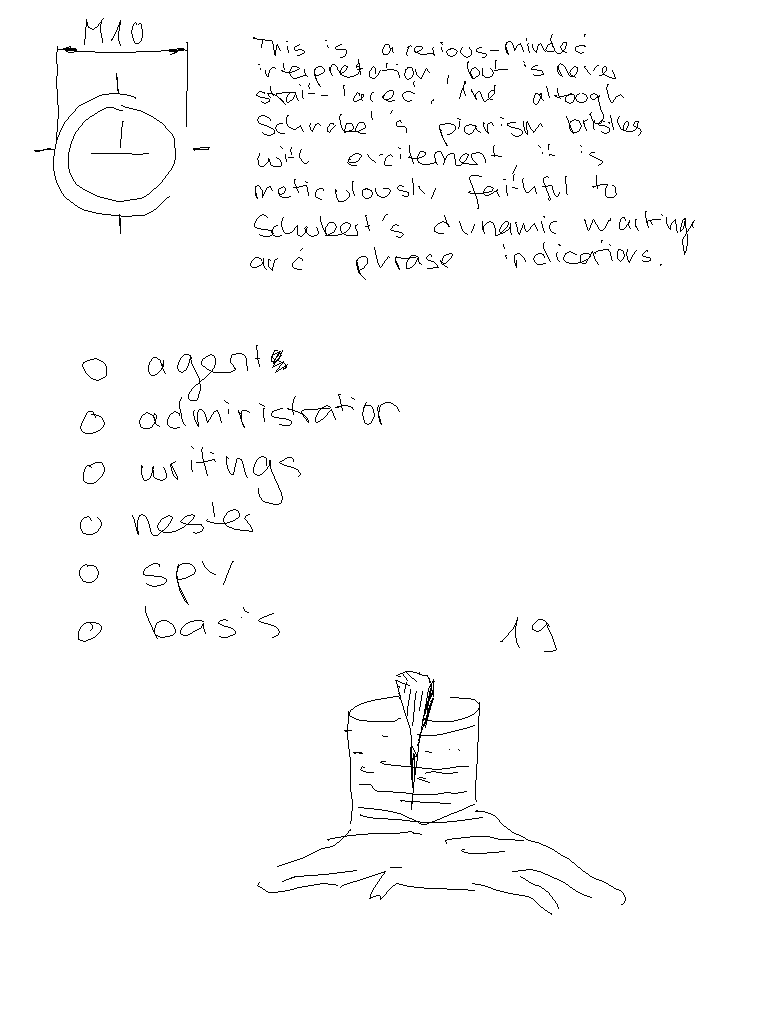 M10
This is a serious-minded
interpretation, but is never
strait-laced. And altough
Schrobe's pianism bristles
with excitement, it is
meticulously faithful to
Schubert's dynamic markings
and phrase indications.
agent
administration
writings
nester
spy
basis
19